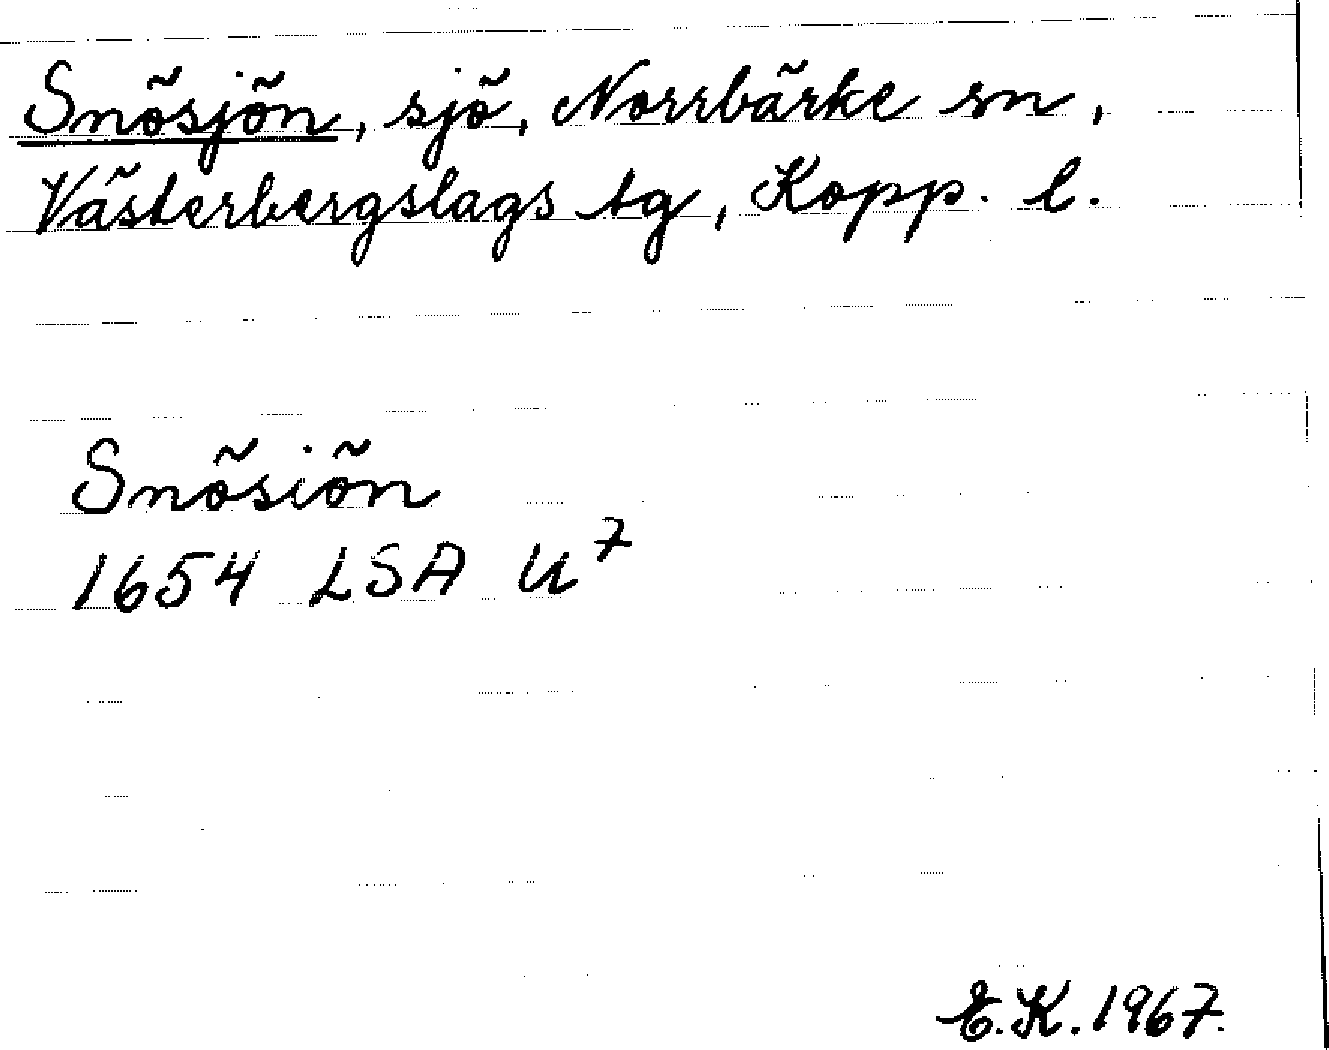 Snösjön, sjö, Norrbärke sn,
Västerbergslags tg, Kopp. l.
Snösiön
1654 LSA U⁷
E.K. 1967.